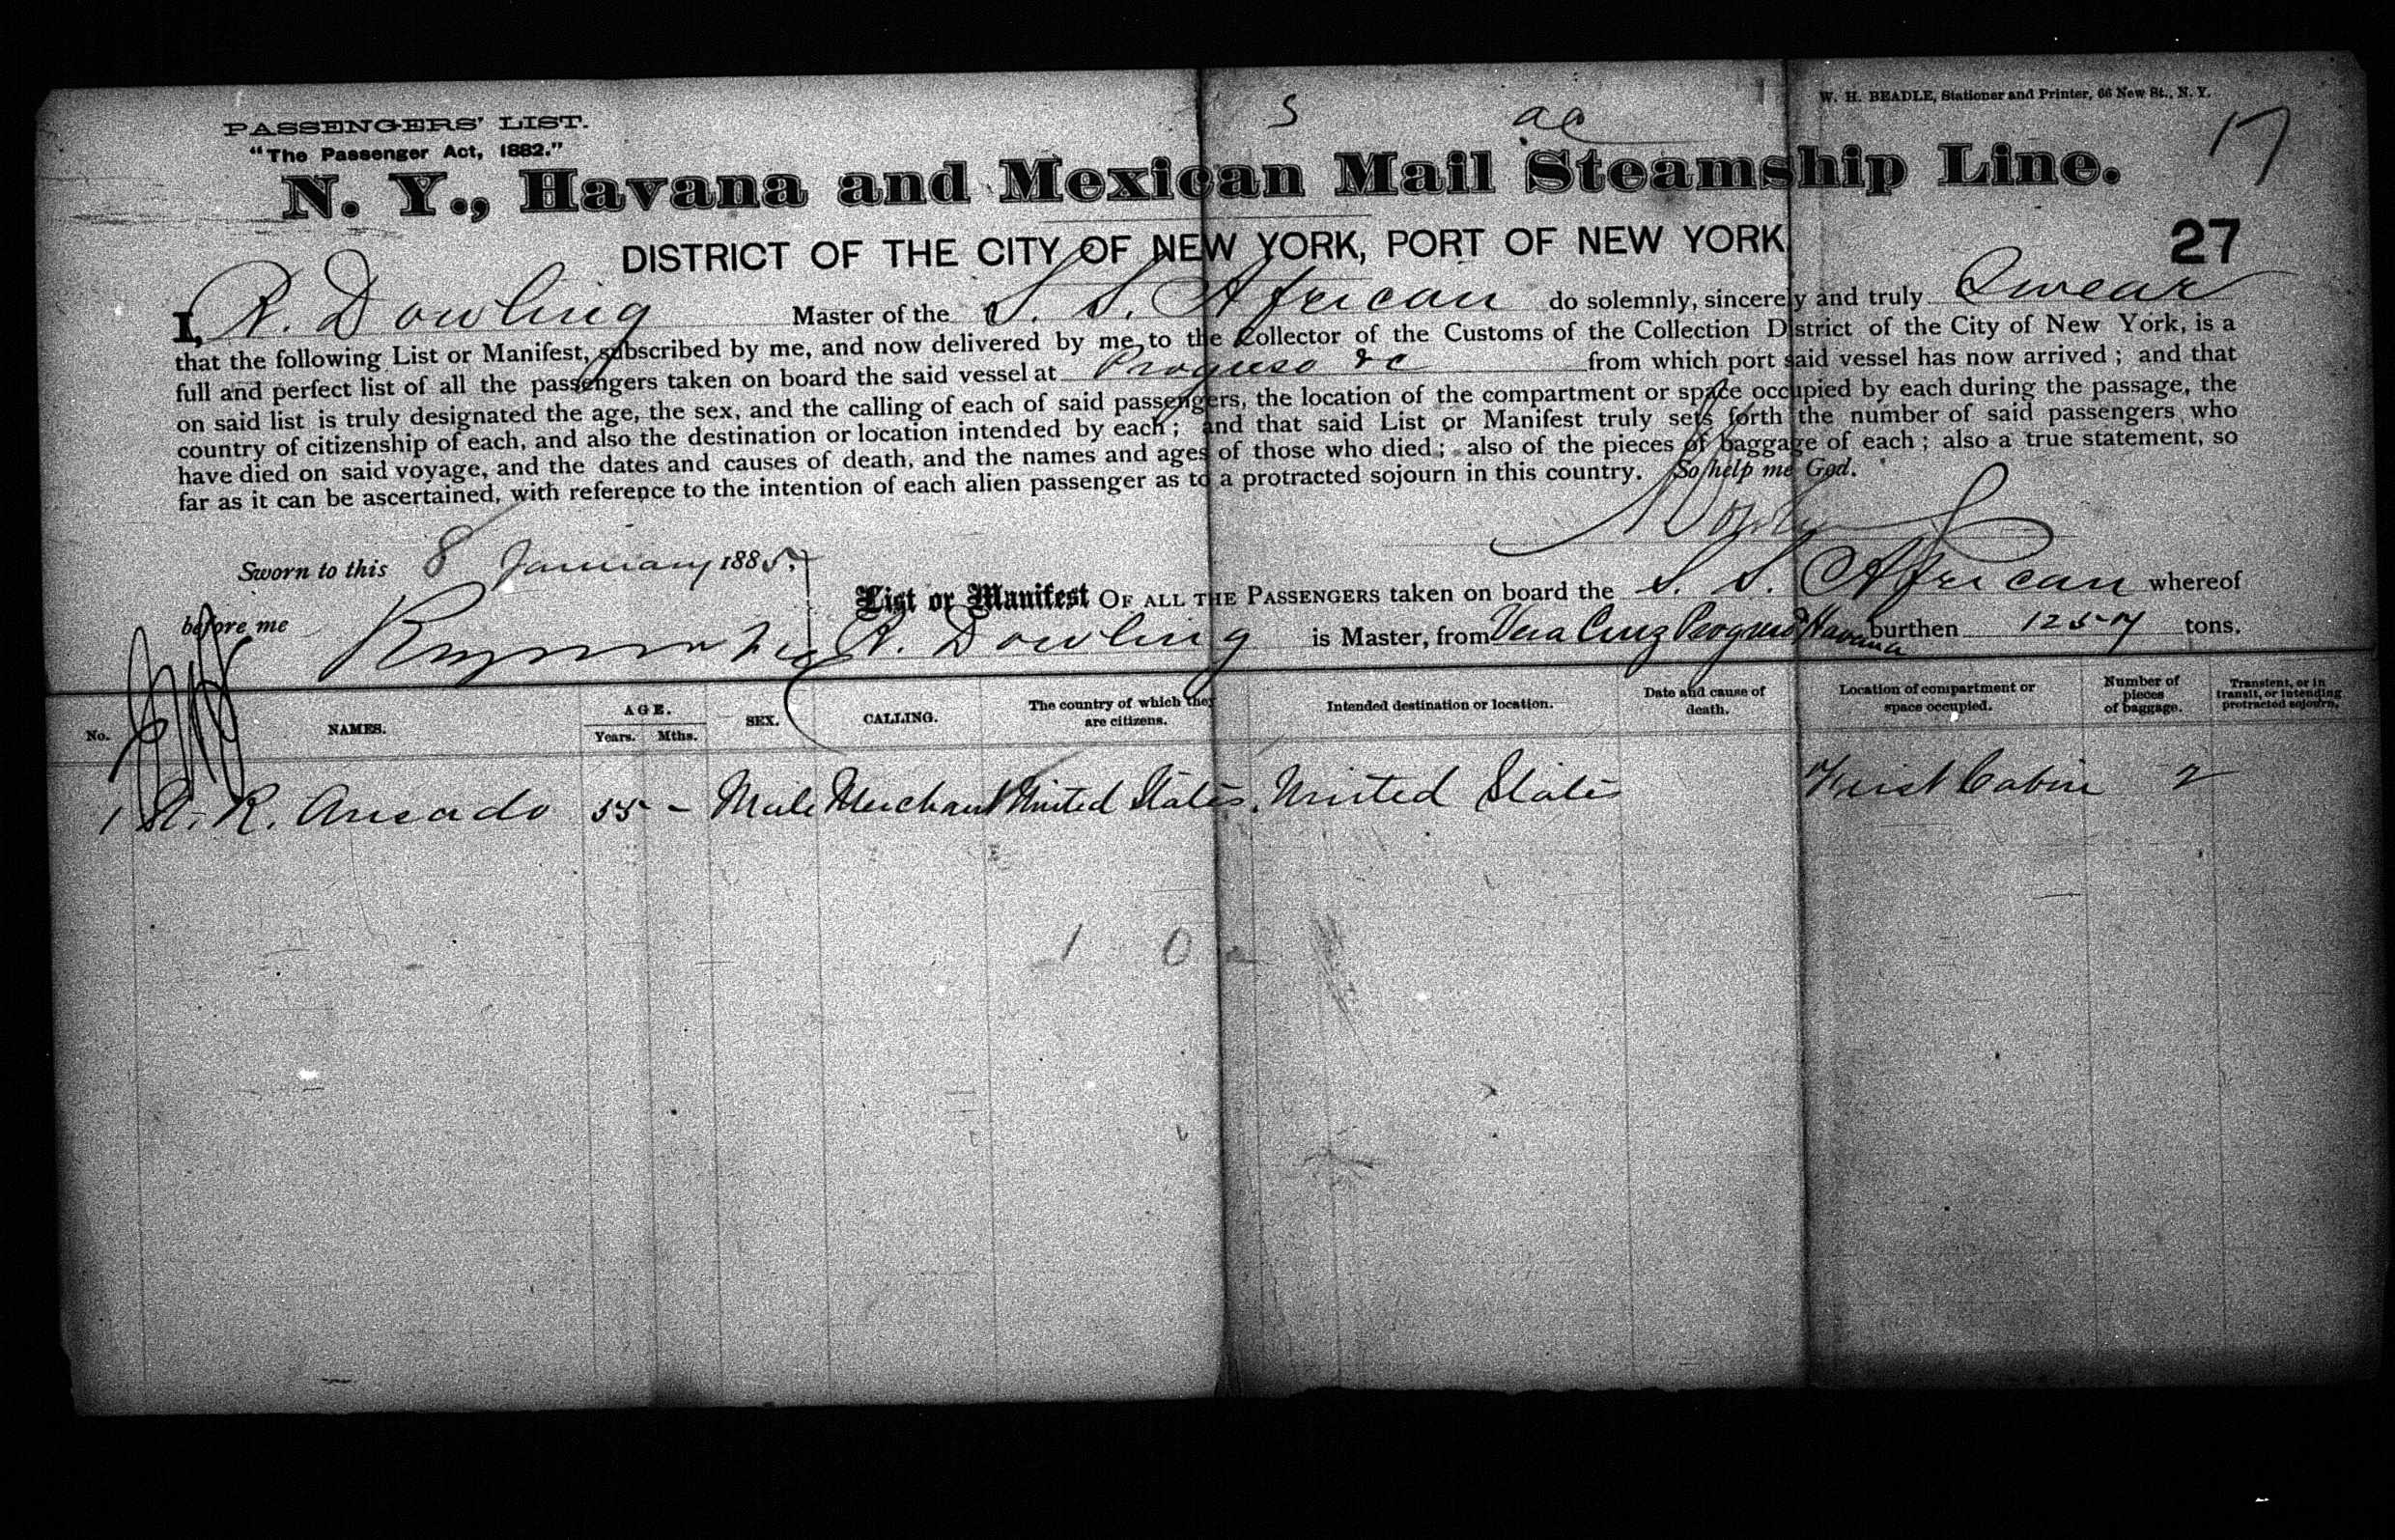 W. H. BEADLE, Stationer and Printer, 66 New St., N. Y.
S ae
17
PASSENGERS' LIST.
"The Passenger Act, 1882."
N. Y., Havana and Mexican Mail Steamship Line.
DISTRICT OF THE CITY OF NEW YORK, PORT OF NEW YORK
27
I, R. Dowling Master of the S. S. African do solemnly, sincerely and truly Swear
that the following List or Manifest, subscribed by me, and now delivered by me to the Collector of the Customs of the Collection District of the City of New York, is a
full and perfect list of all the passengers taken on board the said vessel at Progreso &c from which port said vessel has now arrived; and that
on said list is truly designated the age, the sex, and the calling of each of said passengers, the location of the compartment or space occupied by each during the passage, the
country of citizenship of each, and also the destination or location intended by each; and that said List or Manifest truly sets forth the number of said passengers who
have died on said voyage, and the dates and causes of death, and the names and ages of those who died; also of the pieces of baggage of each; also a true statement, so
far as it can be ascertained, with reference to the intention of each alien passenger as to a protracted sojourn in this country. So help me God.
R Dowling
Sworn to this 8 January 1885.
before me
List or Manifest OF ALL THE PASSENGERS taken on board the S. S. African whereof
R. Dowling is Master, from Vera Cruz Progreso & Havana burthen 1257 tons.
No. NAMES. AGE. Years. Mths. SEX. CALLING. The country of which they are citizens. Intended destination or location. Date and cause of death. Location of compartment or space occupied. Number of pieces of baggage. Transient, or in transit, or intending protracted sojourn.
1 R. Ansado 55 - Male Merchant United States. United States First Cabin 2
1 0